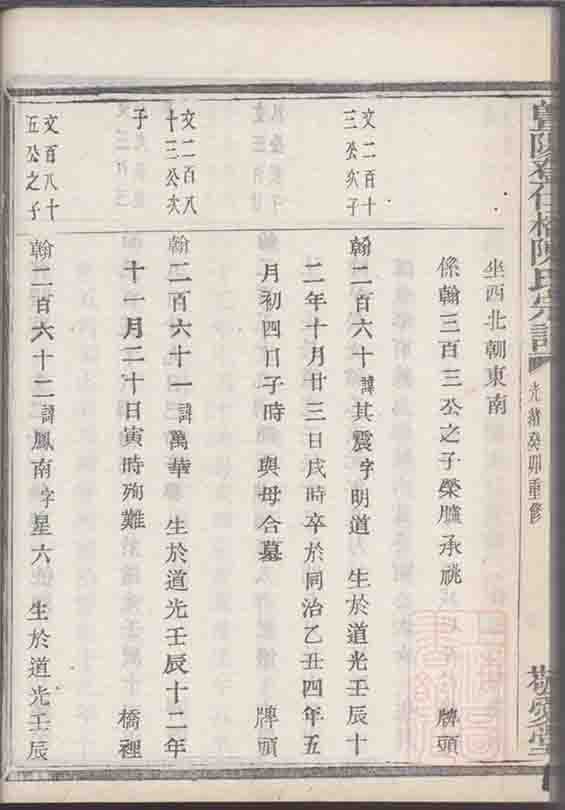 暨陽 陳氏宗譜 光緒癸卯重修 敬愛堂
坐西北朝東南
係翰三百三公之子榮 承祧 牌頭
文二百十三公次子
翰二百六十諱其震字明道 生於道光壬辰十
二年十月廿三日戌時卒於同治乙丑四年五
月初四日子時 與母合墓 牌頭
文二百八十三公次子
翰二百六十一諱萬華 生於道光壬辰十二年
十一月二十日寅時殉難 橋裡
文百八十五公之子
翰二百六十二諱鳳南字星六 生於道光壬辰